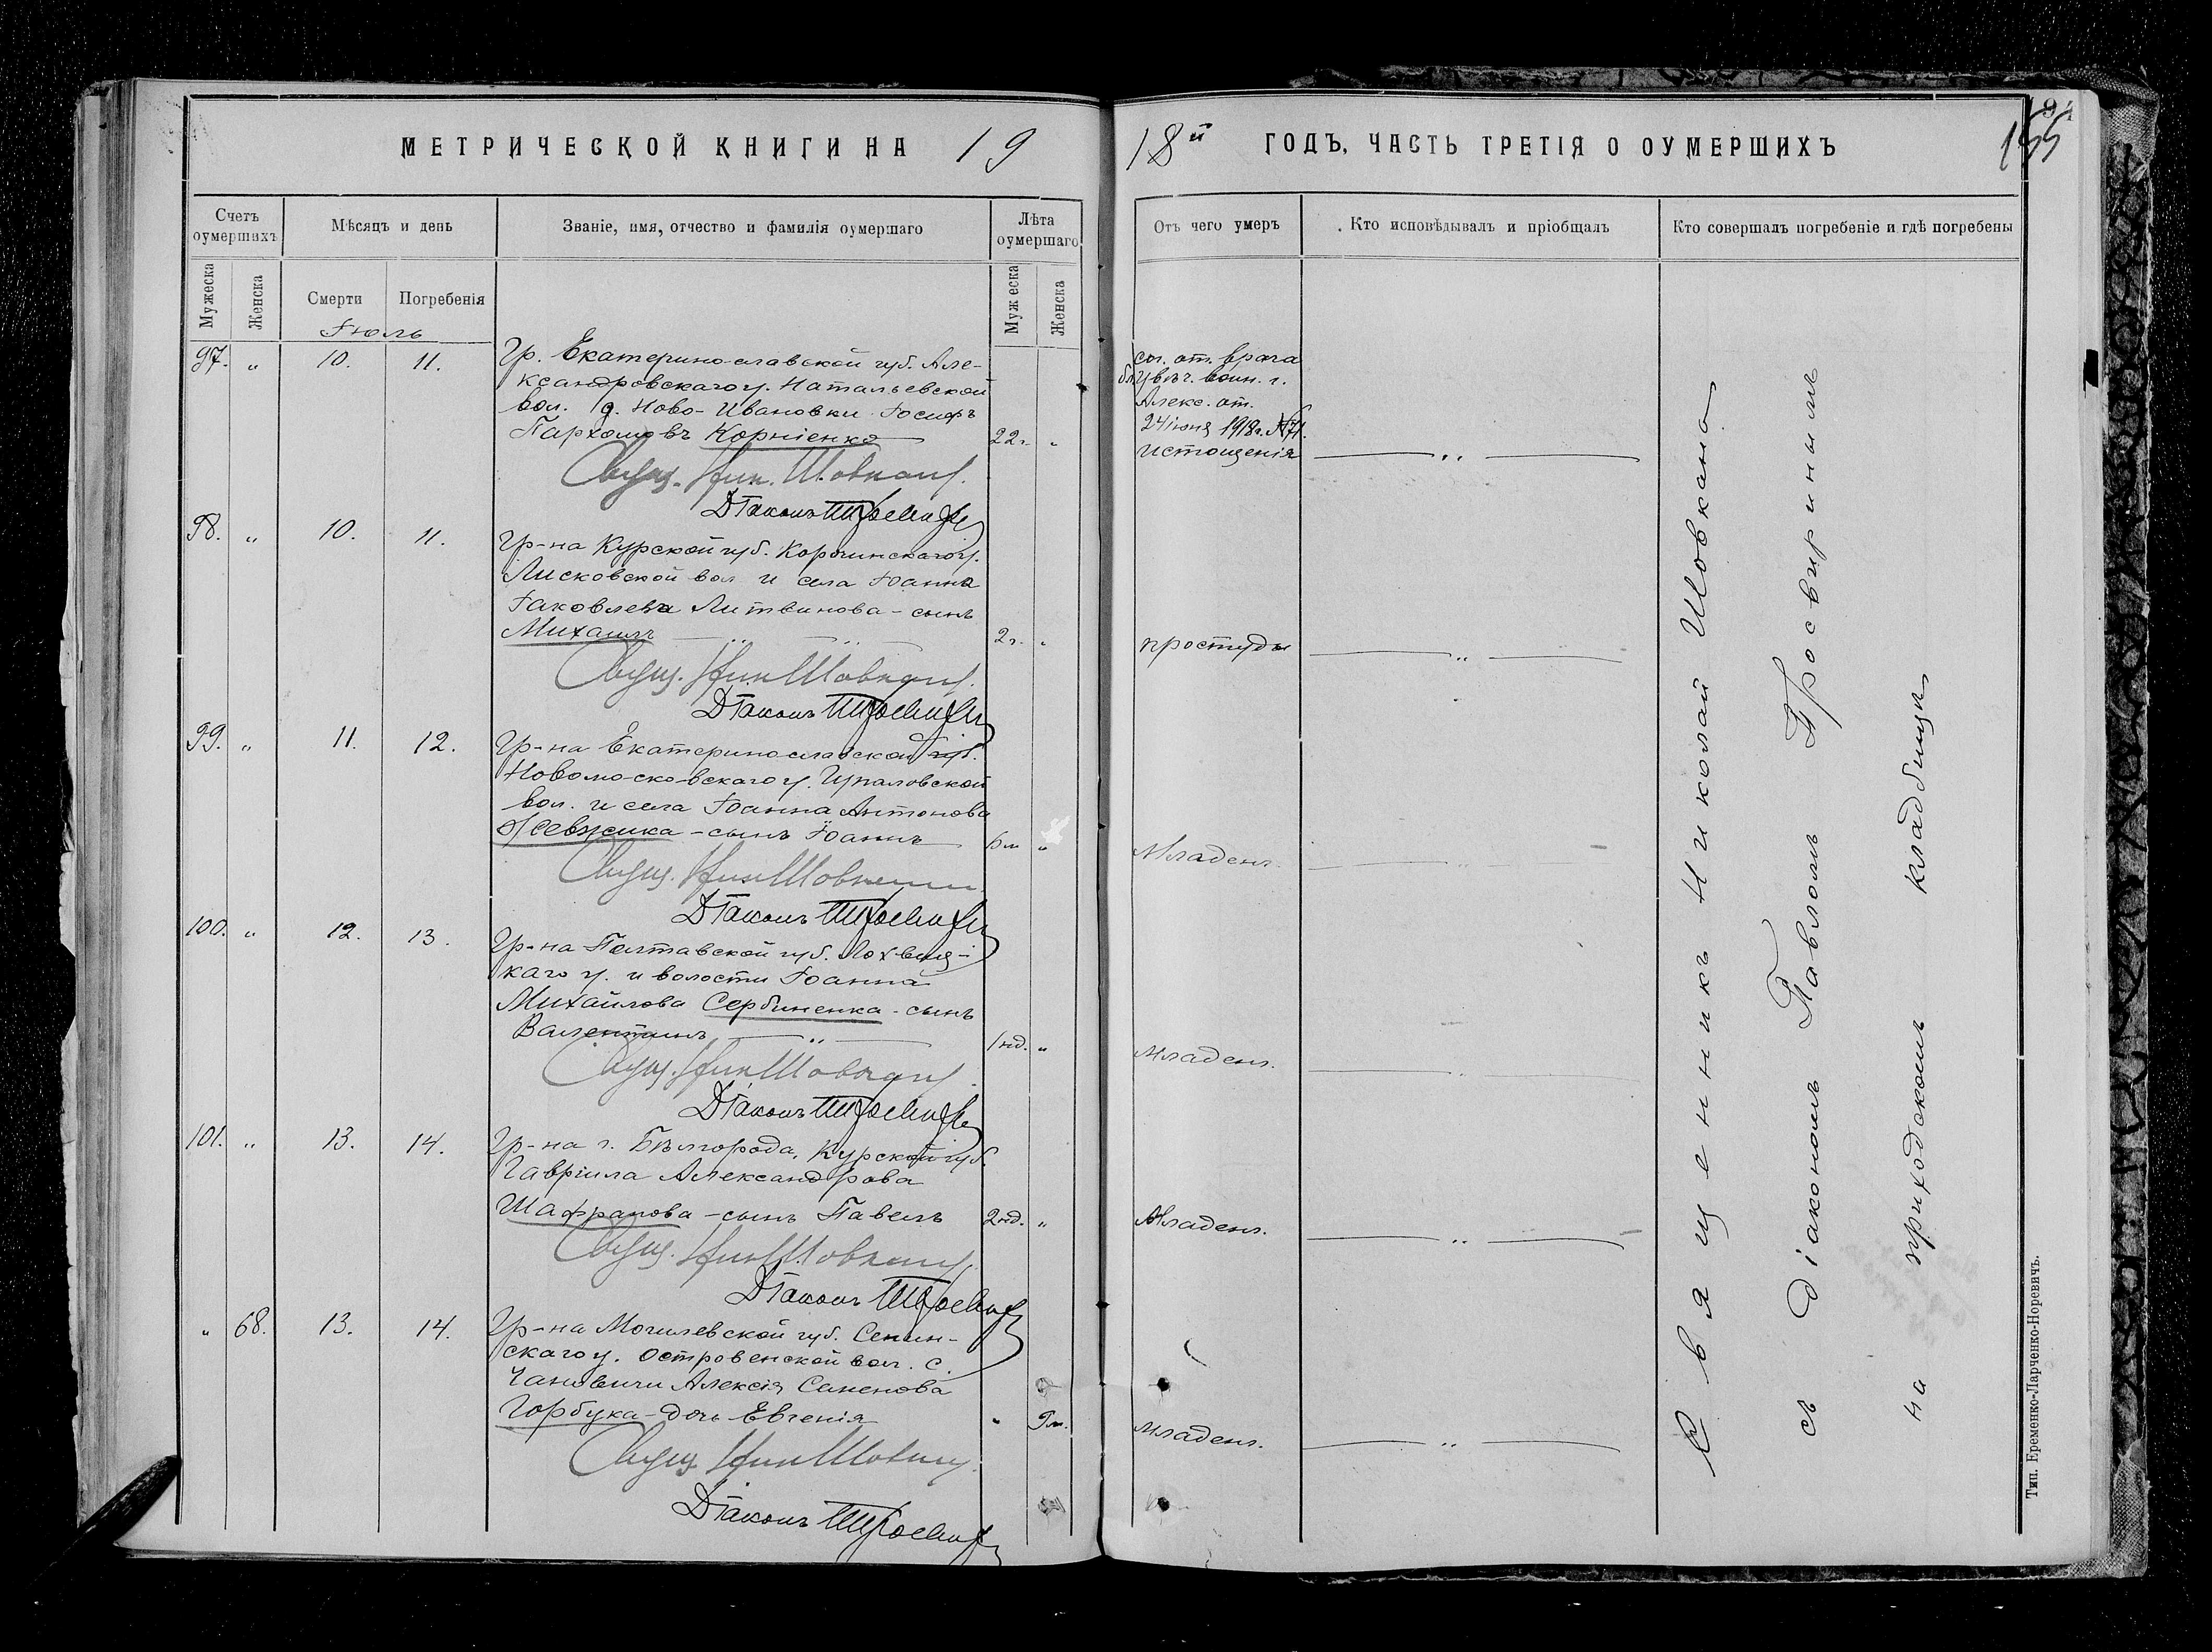 МЕТРИЧЕСКОЙ КНИГИ НА 19
18й ГОДЪ, ЧАСТЬ ТРЕТІЯ О ОУМЕРШИХЪ
155
Счетъ оумершихъ
Мѣсяцъ и день
Званіе, имя, отчество и фамилія оумершаго
Лѣта оумершаго
Отъ чего умеръ
Кто исповѣдывалъ и пріобщалъ
Кто совершалъ погребеніе и гдѣ погребены
Мужеска
Женска
Смерти
Погребенія
Муж еска
Женска
Іюль
97. „ 10. 11.
Гр. Екатеринославской губ. Але-
ксандровскаго у. Натальевской
вол. д. Ново-Ивановки Іосифъ
Пархомовъ Корніенко 22 г. „
от. врача
Алекс. от.
24 іюня 1918 г. №71.
истощенія
Свящ. Ник. Шовкапъ
Діаконъ
98. „ 10. 11.
Гр-на Курской губ. Корочинскаго у.
Лисковской вол. и села Іоанна
Іаковлева Литвинова - сынъ
Михаилъ 2 г. „
простуды
Свящ. Ник Шовкапъ
Діаконъ
99. „ 11. 12.
Гр-на Екатеринославской губ.
Новомосковскаго у. Чупаловской
вол. и села Іоанна Антонова
- сынъ Іоаннъ 6 м „
Младенч.
Свящ. Ник Шовкапъ
Діаконъ
100. „ 12. 13.
Гр-на Полтавской губ. Лохвиц-
каго у. и волости Іоанна
Михайлова Сербиненка - сынъ
Валентинъ 1 нд. „
Младенч.
Свящ. Ник Шовкапъ
Діаконъ
101. „ 13. 14.
Гр-на г. Бѣлгорода, Курской губ.
Гавріила Александрова
Шафранова - сынъ Павелъ 2 нд. „
Младенч.
Свящ. Ник Шовкапъ
Діаконъ
„ 68. 13. 14.
Гр-на Могилевской губ. Сенин-
скаго у. Островенской вол. с.
Алексія
Горбука - дочь Евгенія „ 9 м.
младенч.
Свящ. Ник Шовкапъ
Діаконъ
Священникъ Николай Шовкапъ
съ діакономъ Павломъ Просвиринымъ
на приходскомъ кладбищѣ
Тип. Еременко-Ларченко-Норевичъ.